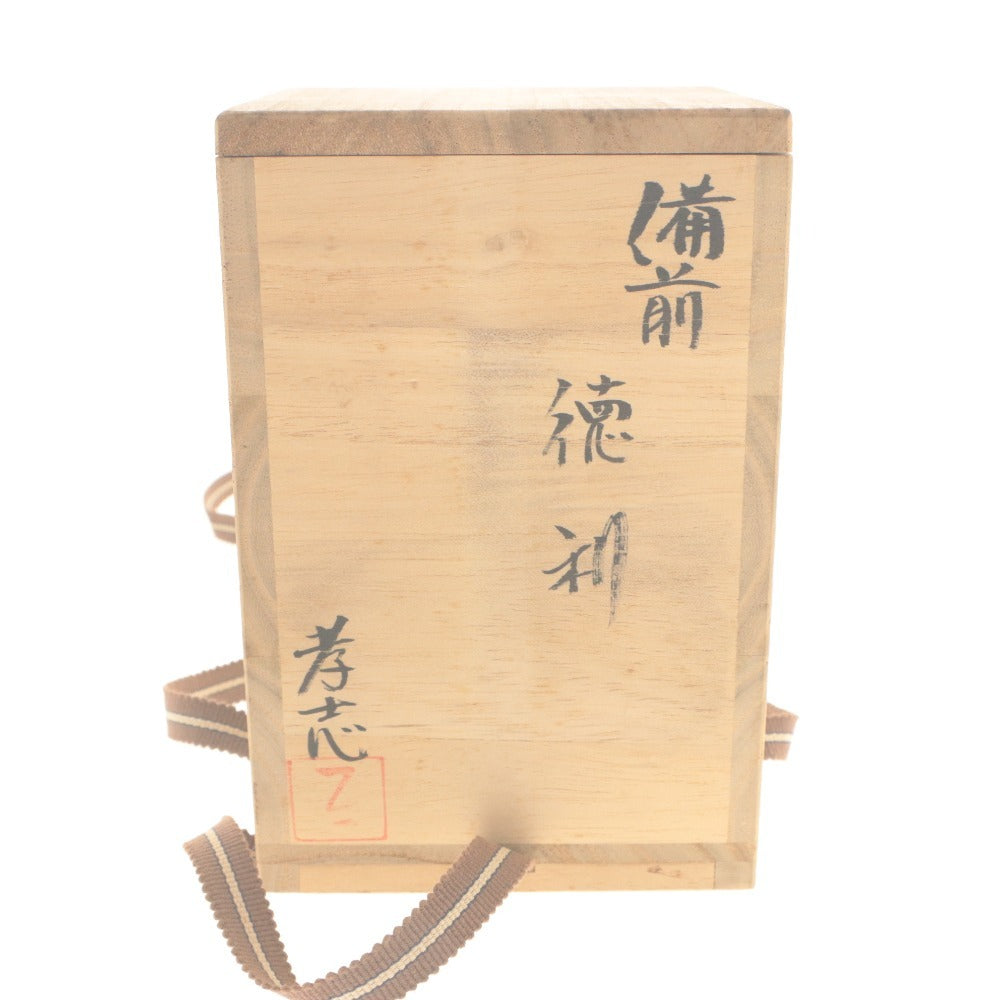 備前
徳利
孝志